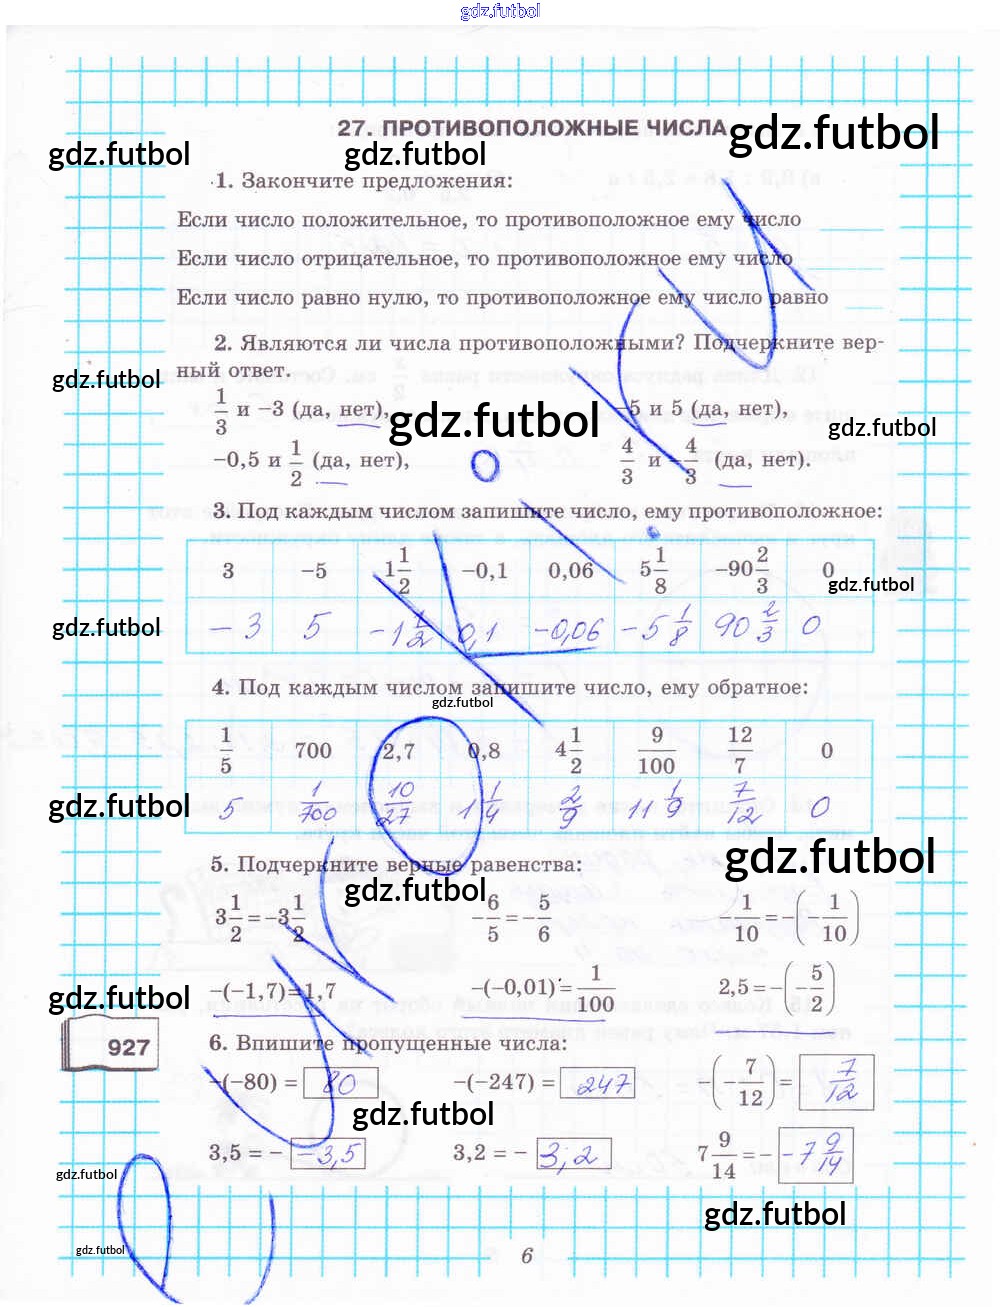 gdz.futbol
27. ПРОТИВОПОЛОЖНЫЕ ЧИСЛА
gdz.futbol
gdz.futbol
gdz.futbol
1. Закончите предложения:
Если число положительное, то противоположное ему число
Если число отрицательное, то противоположное ему число
Если число равно нулю, то противоположное ему число равно
2. Являются ли числа противоположными? Подчеркните вер-
ный ответ.
gdz.futbol
1/3 и −3 (да, нет), −5 и 5 (да, нет),
gdz.futbol
gdz.futbol
−0,5 и 1/2 (да, нет), 4/3 и −4/3 (да, нет).
3. Под каждым числом запишите число, ему противоположное:
3 −5 1 1/2 −0,1 0,06 5 1/8 −90 2/3 0
gdz.futbol
gdz.futbol
−3 5 −1 1/2 0,1 −0,06 −5 1/8 90 2/3 0
4. Под каждым числом запишите число, ему обратное:
gdz.futbol
1/5 700 2,7 0,8 4 1/2 9/100 12/7 0
gdz.futbol
5 1/700 10/27 1 1/4 2/9 11 1/9 7/12 0
5. Подчеркните верные равенства:
gdz.futbol
gdz.futbol
3 1/2 = −3 1/2 −6/5 = −5/6 1/10 = −(−1/10)
−(−1,7)=1,7 −(−0,01)=1/100 2,5=−(−5/2)
gdz.futbol
927
6. Впишите пропущенные числа:
−(−80) = 80 −(−247) = 247 (−7/12) = 7/12
gdz.futbol
3,5 = − −3,5 3,2 = − 3,2 7 9/14 = − −7 9/14
gdz.futbol
gdz.futbol
gdz.futbol
6